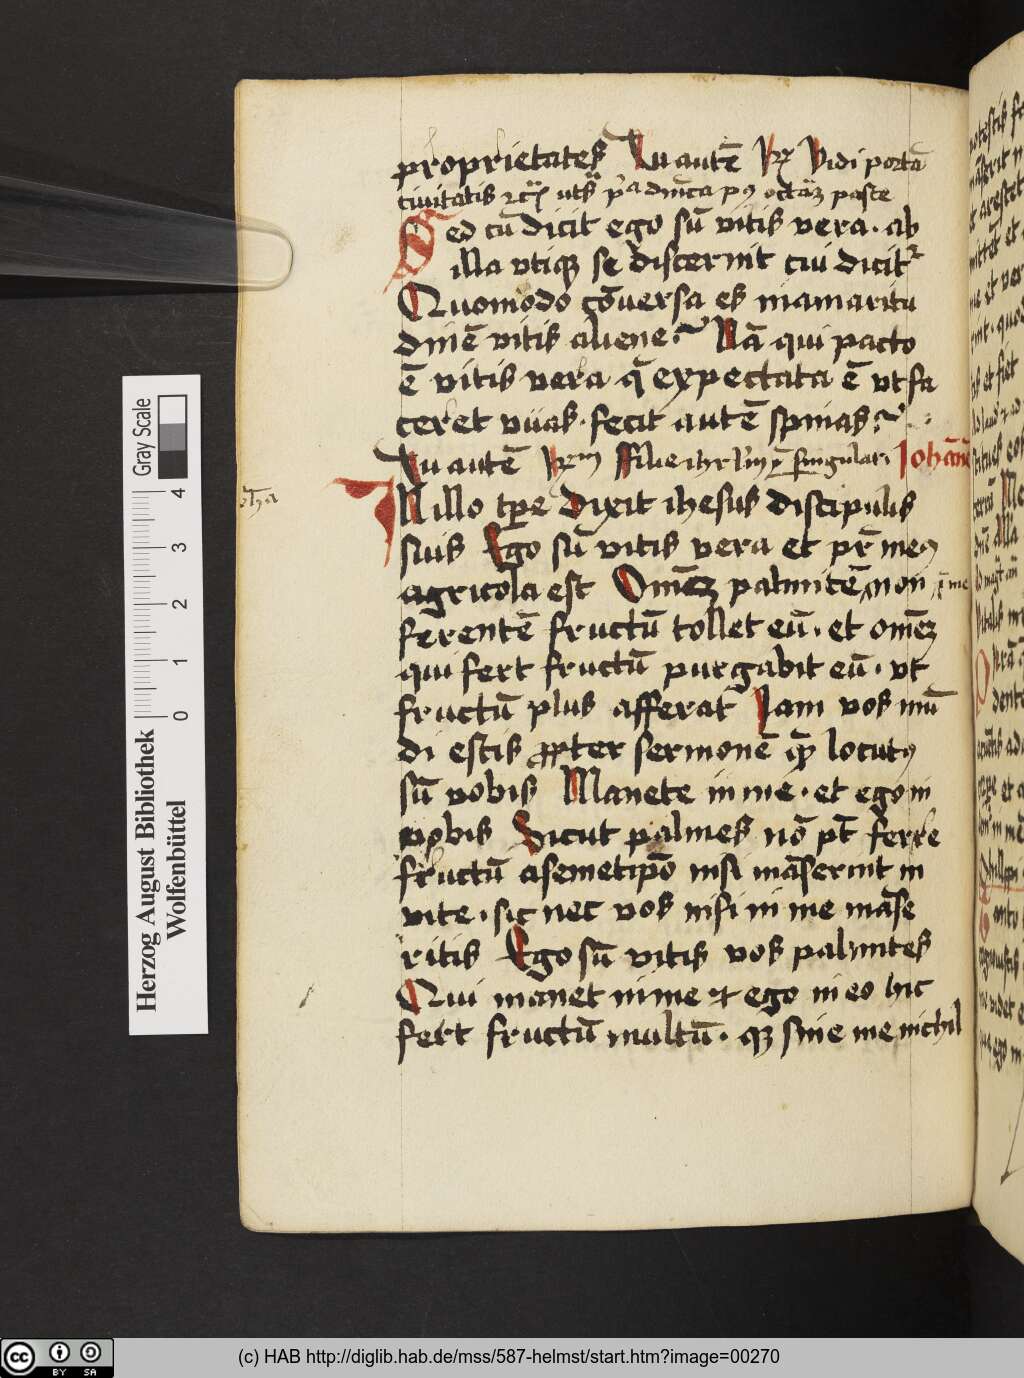 proprietates Tu autē Rx Vidi portā
ciuitatis
Sed cū dicit ego sū vitis vera · ab
illa vtiqꝫ se discernit cui dicitᷣ
Quomodo cōuersa es inamaritu
dinē vitis aliene? Nā qui pacto
ē vitis vera q̄ expectata ē vt fa
ceret vuas · fecit autē spinas?
Tu autē Johānē
In illo tꝑe dixit ihesus discipulis
suis Ego sū vitis vera et pr̄ meꝰ
agricola est Omēꝫ palmitē non ī me
ferentē fructū tollet eū · et omēꝫ
qui fert fructū purgabit eū · vt
fructū plus afferat Iam vos mū
di estis ꝓpter sermonē quē locutꝰ
sū vobis Manete in me · et ego in
vobis Sicut palmes nō pt̄ ferre
fructū asemetipō nisi māserint in
vite · sic nec vos nisi in me māse
ritis Ego sū vitis vos palmites
Qui manet in me et ego in eo hic
fert fructū multū · qꝫ sine me nichil
Herzog August Bibliothek
Wolfenbüttel
Gray Scale
0 1 2 3 4
cc BY SA
(c) HAB http://diglib.hab.de/mss/587-helmst/start.htm?image=00270